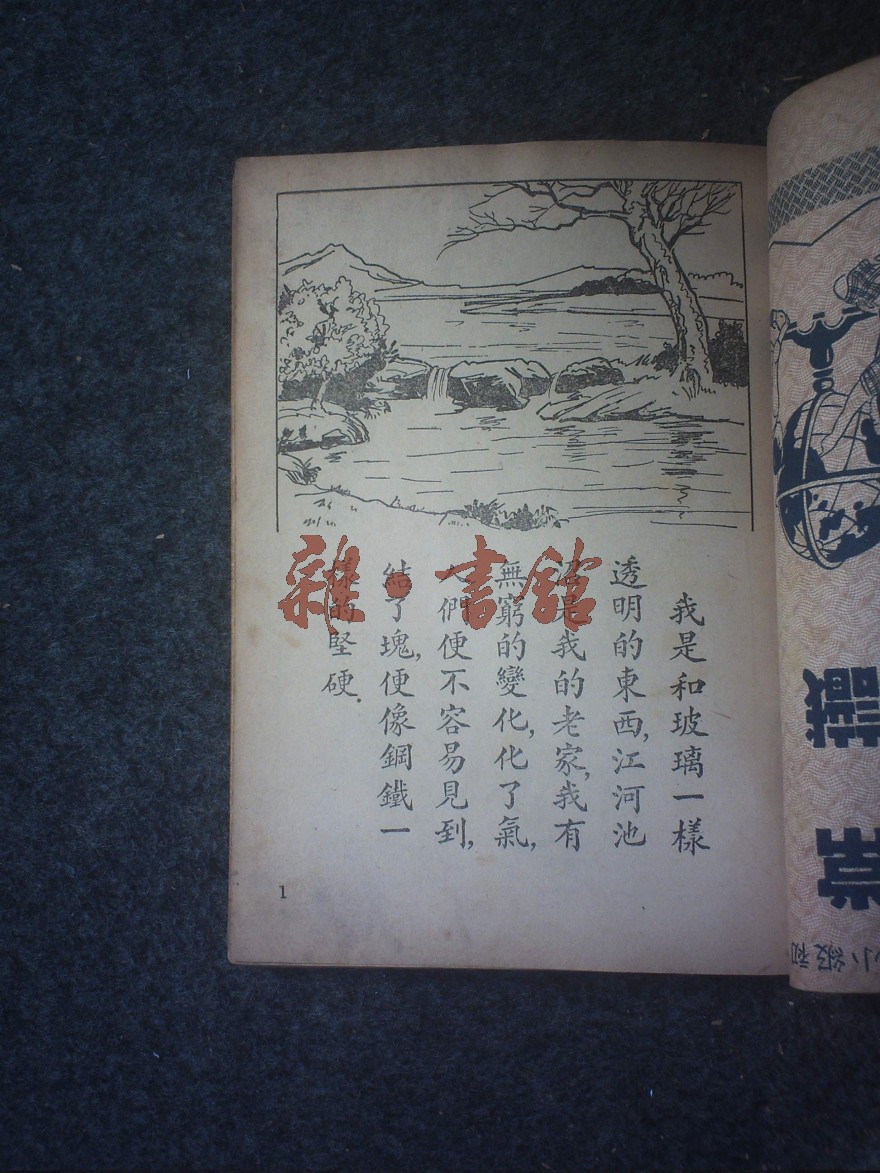 我是和玻璃一樣
透明的東西,江河池
沼是我的老家,我有
無窮的變化,化了氣,
人們便不容易見到,
結了塊,便像鋼鐵一
樣的堅硬.
1
雜·書館
常識
初級小